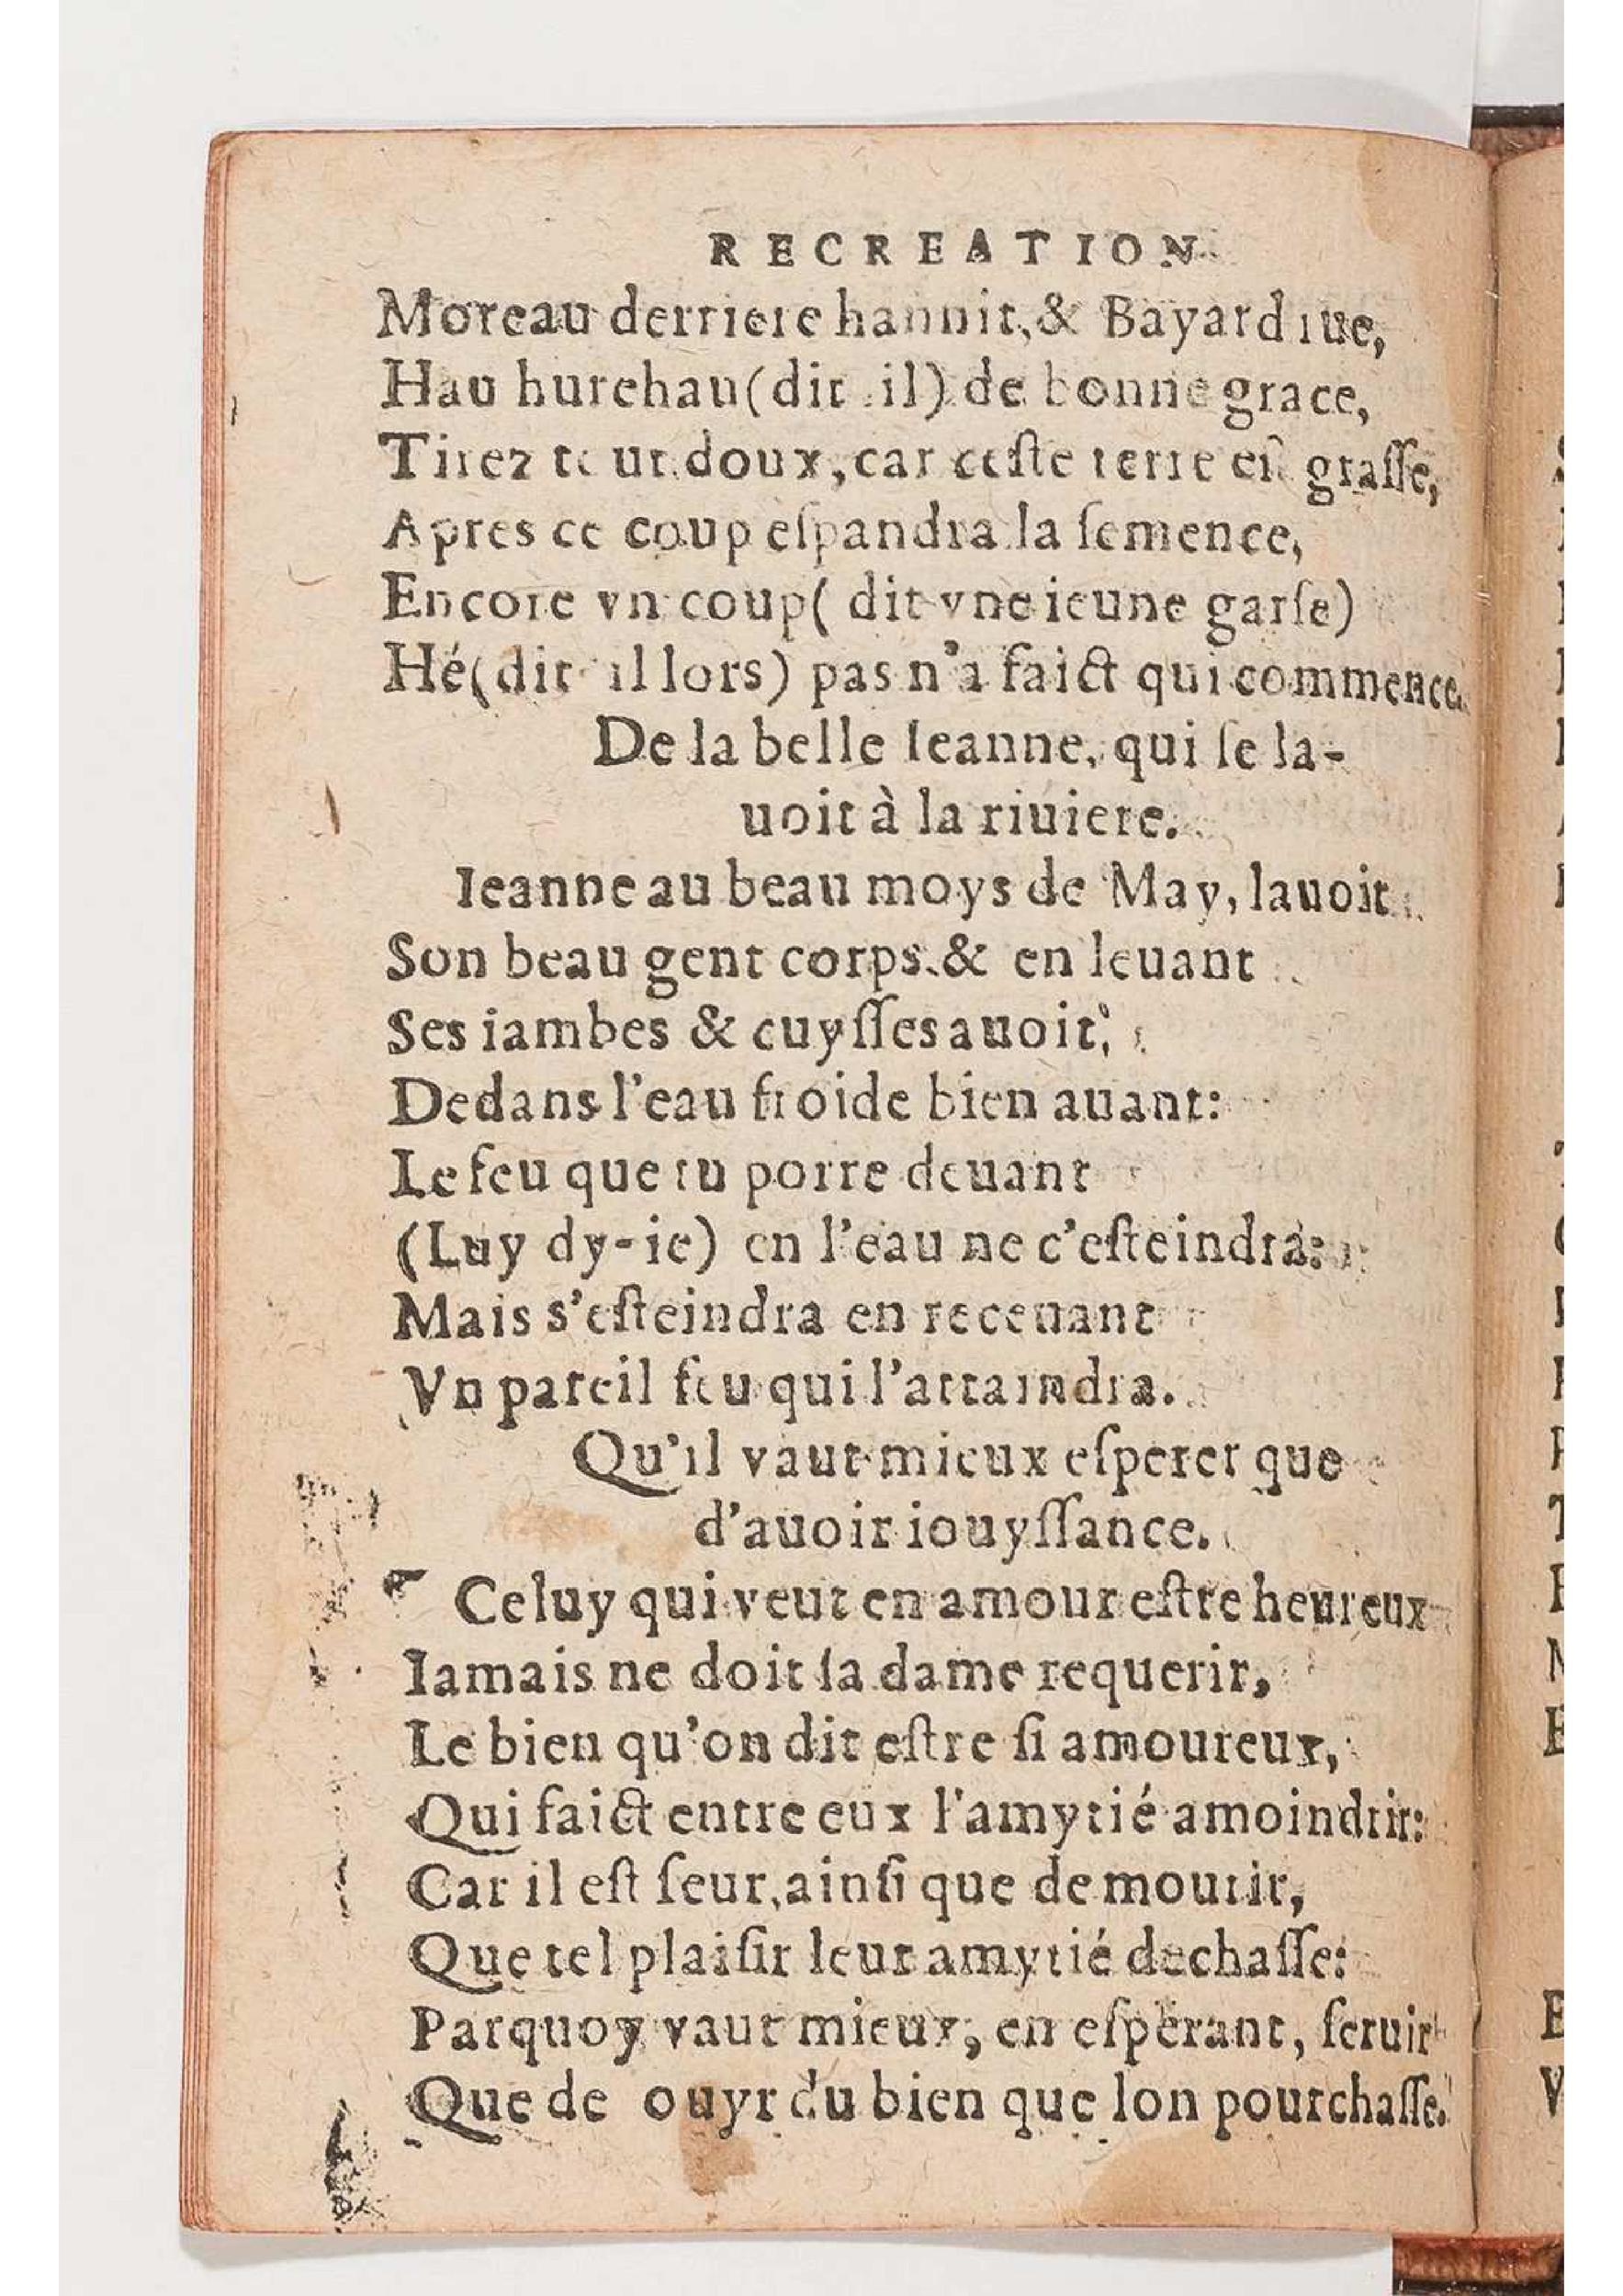 RECREATION
Moreau derriere hannit, & Bayard rue,
Hau hurehau (dit il) de bonne grace,
Tirez tout doux, car ceſte terre eſt graſſe,
Apres ce coup eſpandra la ſemence,
Encore vn coup (dit vne ieune garſe)
Hé (dit il lors) pas n'a faict qui commence.
De la belle Ieanne, qui ſe la-
uoit à la riuiere.
Ieanne au beau moys de May, lauoit
Son beau gent corps, & en leuant
Ses iambes & cuyſſes auoit,
Dedans l'eau froide bien auant:
Le feu que tu porte deuant
(Luy dy-ie) en l'eau ne c'eſteindra:
Mais s'eſteindra en receuant
Vn pareil feu qui l'attaindra.
Qu'il vaut mieux eſperer que
d'auoir iouyſſance.
Celuy qui veut en amour eſtre heureux
Iamais ne doit ſa dame requerir,
Le bien qu'on dit eſtre ſi amoureux,
Qui faict entre eux l'amytié amoindrir:
Car il eſt ſeur, ainſi que de mourir,
Que tel plaiſir leur amytié dechaſſe:
Parquoy vaut mieux, en eſperant, ſeruir
Que de ouyr du bien que lon pourchaſſe.